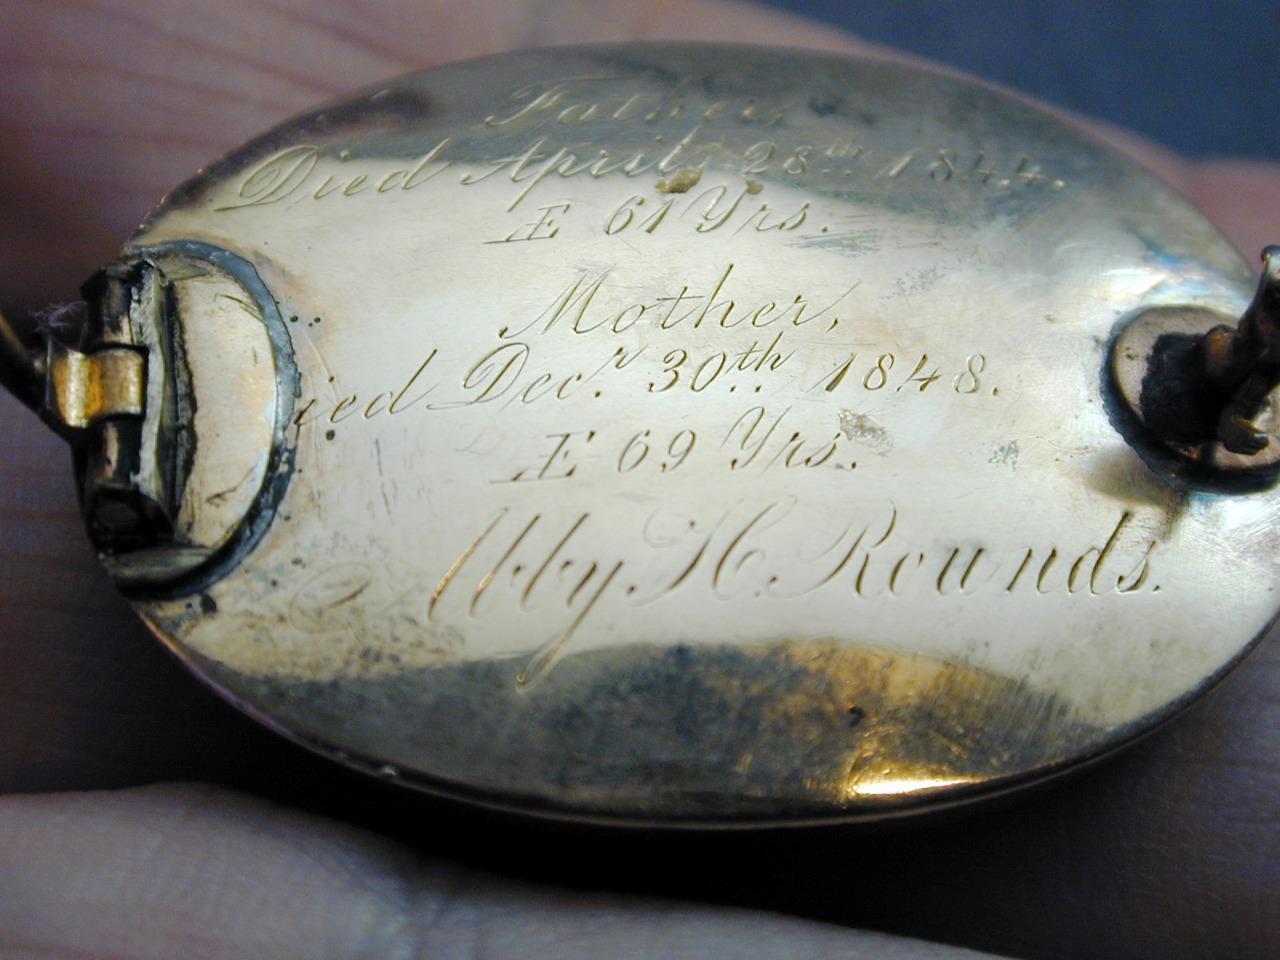 Father,
Died April 28th. 1844.
Æ 61 Yrs.
Mother,
ied Dec.r 30th. 1848.
Æ 69 Yrs.
Abby H. Rounds.